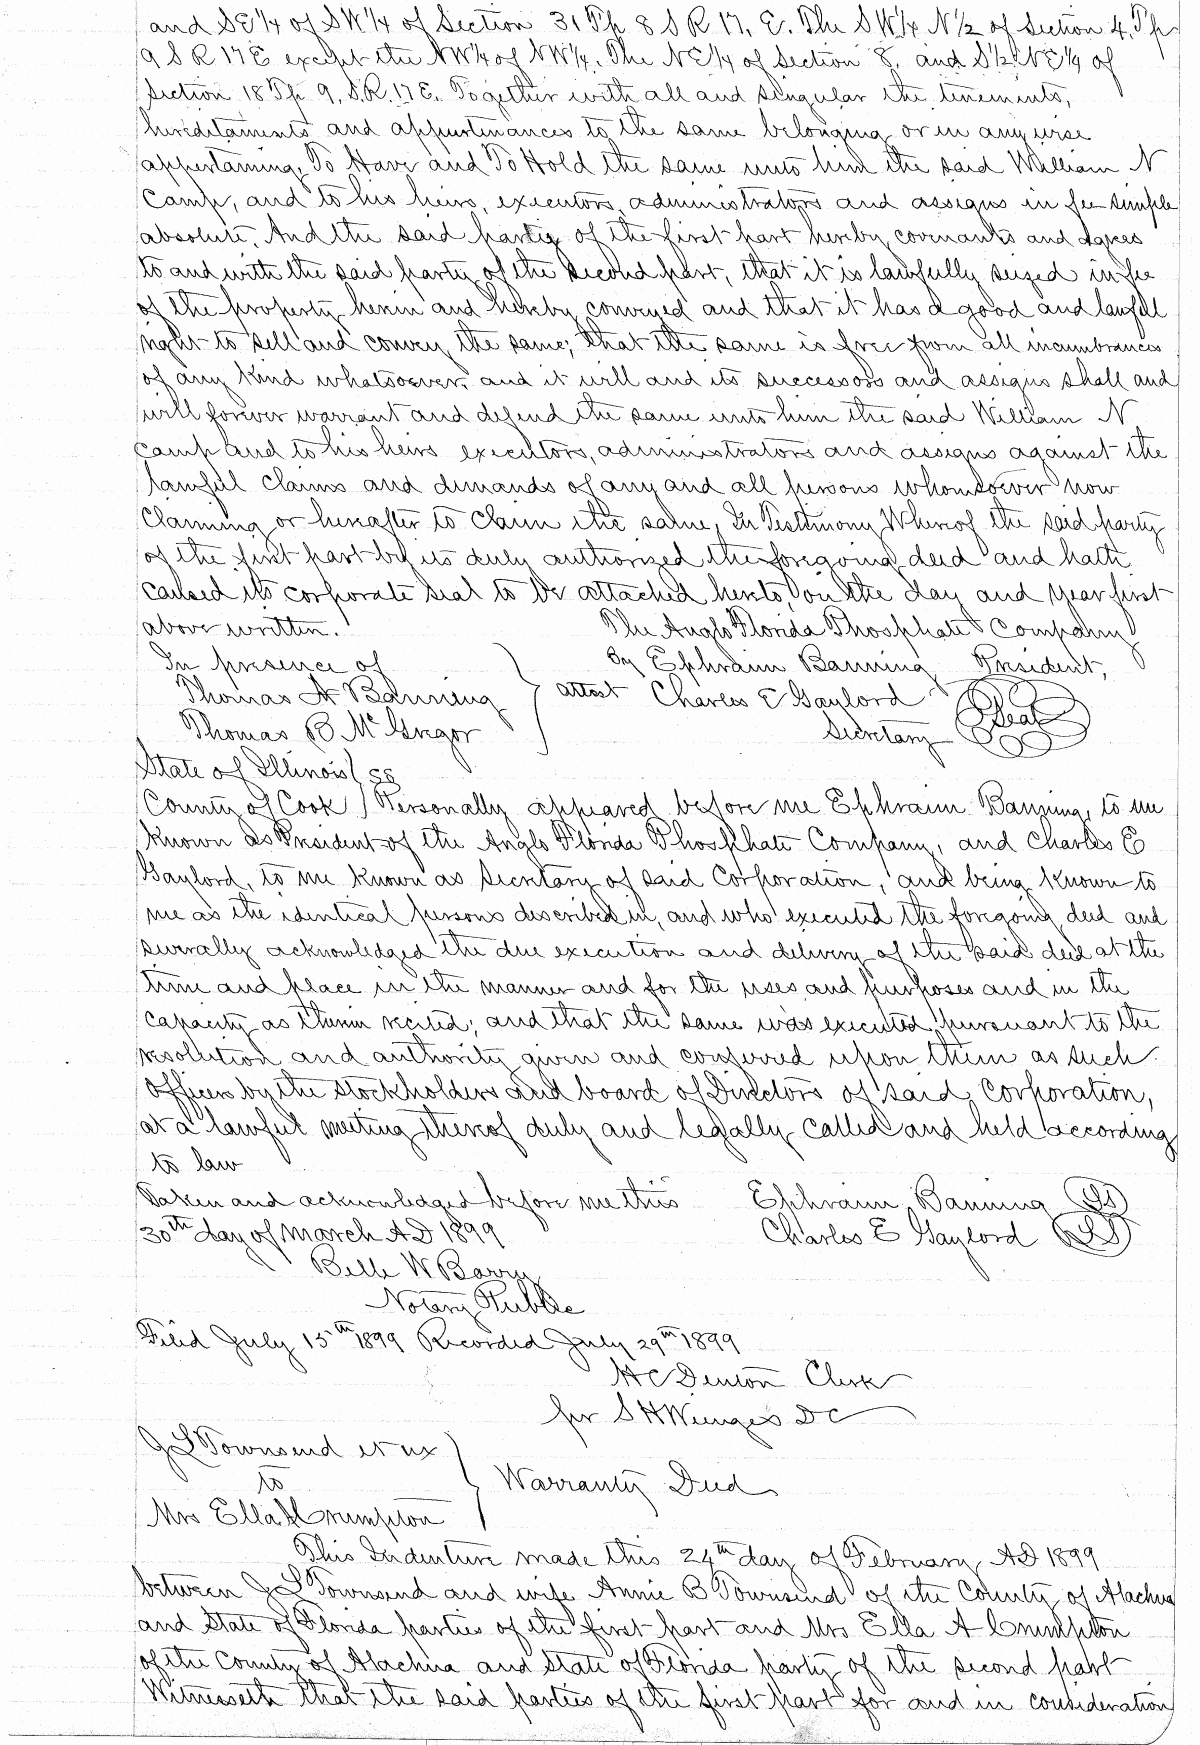 and SE¼ of SW¼ of Section 31 Tp 8 S R 17, E. The SW¼ N½ of Section 4, Tp
9 S R 17 E except the NW¼ of NW¼. The NE¼ of Section 8, and S½ NE¼ of
Section 18 Tp 9, S.R. 17 E. Together with all and singular the tenements,
hereditaments and appurtenances to the same belonging or in any wise
appertaining, To Have and To Hold the same unto him the said William N
Camp, and to his heirs, executors, administrators and assigns in fee simple
absolute. And the said party of the first part hereby covenants and agrees
to and with the said party of the second part, that it is lawfully seized in fee
of the property herein and hereby conveyed and that it has a good and lawful
right to sell and convey the same; that the same is free from all incumbrances
of any kind whatsoever, and it will and its successors and assigns shall and
will forever warrant and defend the same unto him the said William N
Camp and to his heirs executors, administrators and assigns against the
lawful claims and demands of any and all persons whomsoever now
claiming or hereafter to claim the same, In Testimony Whereof the said party
of the first part by its duly authorized the foregoing deed and hath
caused its corporate seal to be attached hereto, on the day and year first
above written. The Anglo Florida Phosphate Company
In presence of by Ephraim Banning President,
Thomas A Banning attest Charles E Gaylord
Thomas B. McGregor Secretary Seal
State of Illinois ss
County of Cook Personally appeared before me Ephraim Banning, to me
known as President of the Anglo Florida Phosphate Company, and Charles E
Gaylord, to me known as Secretary of said Corporation, and being known to
me as the identical persons described in, and who executed the foregoing deed and
severally acknowledged the due execution and delivery of the said deed at the
time and place in the manner and for the uses and purposes and in the
capacity as therein recited; and that the same was executed pursuant to the
resolution and authority given and conferred upon them as such
officers by the stockholders and board of Directors of said Corporation,
at a lawful meeting thereof duly and legally called and held according
to law
Taken and acknowledged before me this Ephraim Banning LS
30th day of March AD 1899 Charles E Gaylord LS
Belle W Barry
Notary Public
Filed July 15th 1899 Recorded July 29th 1899
H C Denton Clerk
per S H Wienges DC
J L Townsend et ux
to Warranty Deed
Mrs Ella A Crumpton
This Indenture made this 24th day of February AD 1899
between J L Townsend and wife Annie B Townsend of the County of Alachua
and State of Florida parties of the first part and Mrs Ella A Crumpton
of the County of Alachua and State of Florida party of the second part
Witnesseth that the said parties of the first part for and in consideration